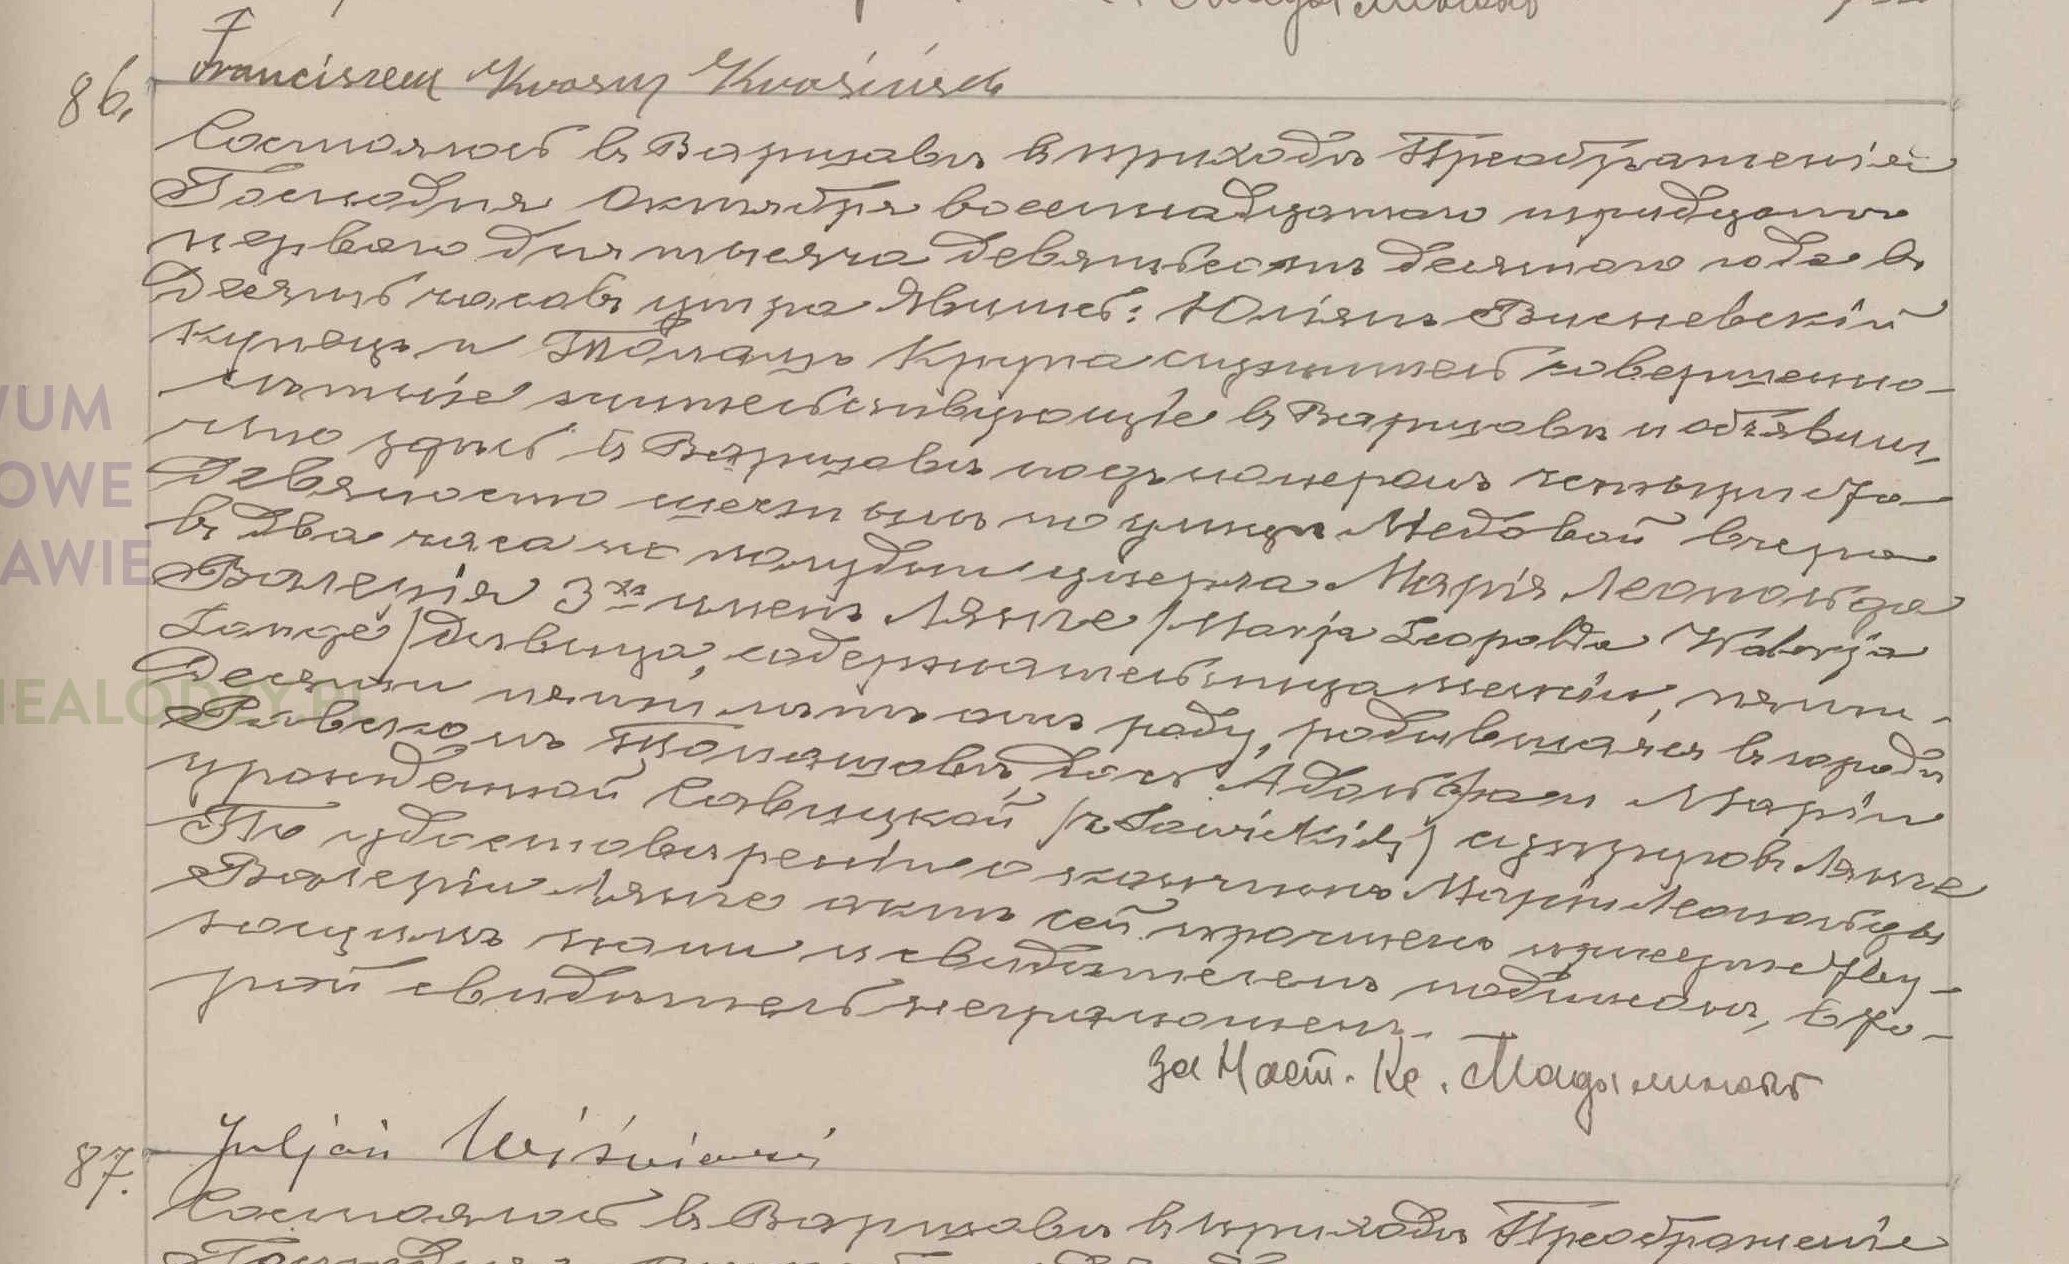 86.
Franciszek
Состоялось въ Варшавѣ въ приходѣ Преображенія
Господня Октября восемнадцатаго тридцать
перваго дня тысяча девятьсотъ десятаго года въ
десять часовъ утра Явились: Юліянъ Висневскій
купецъ и Томашъ Крупа служитель совершенно-
лѣтніе жительствующіе въ Варшавѣ и объявили,
что здѣсь въ Варшавѣ подъ номеромъ четыреста
девяносто шестымъ по улицѣ Медовой вчера
въ два часа по полудни умерла Марія Леопольда
Валерія 3хъ именъ Лянге /Marja Leopolda Walerja
Lange/ дѣвица, содержательница пенсіи, пяти-
десяти пяти лѣтъ отъ роду, родившаяся въ городѣ
Равскомъ Томашовѣ, дочь Адольфа и Маріи
урожденной Савицкой /z Sawickich/ супруговъ Лянге
По удостовѣреніи о кончинѣ Маріи Леопольды
Валеріи Лянге актъ сей прочитанъ присутству-
ющимъ нами и свидѣтелемъ подписанъ, Вто-
рой свидѣтель неграмотенъ.
за Наст. Кс.
87.
Juljan Wiśniewski
Состоялось въ Варшавѣ въ приходѣ Преображеніе